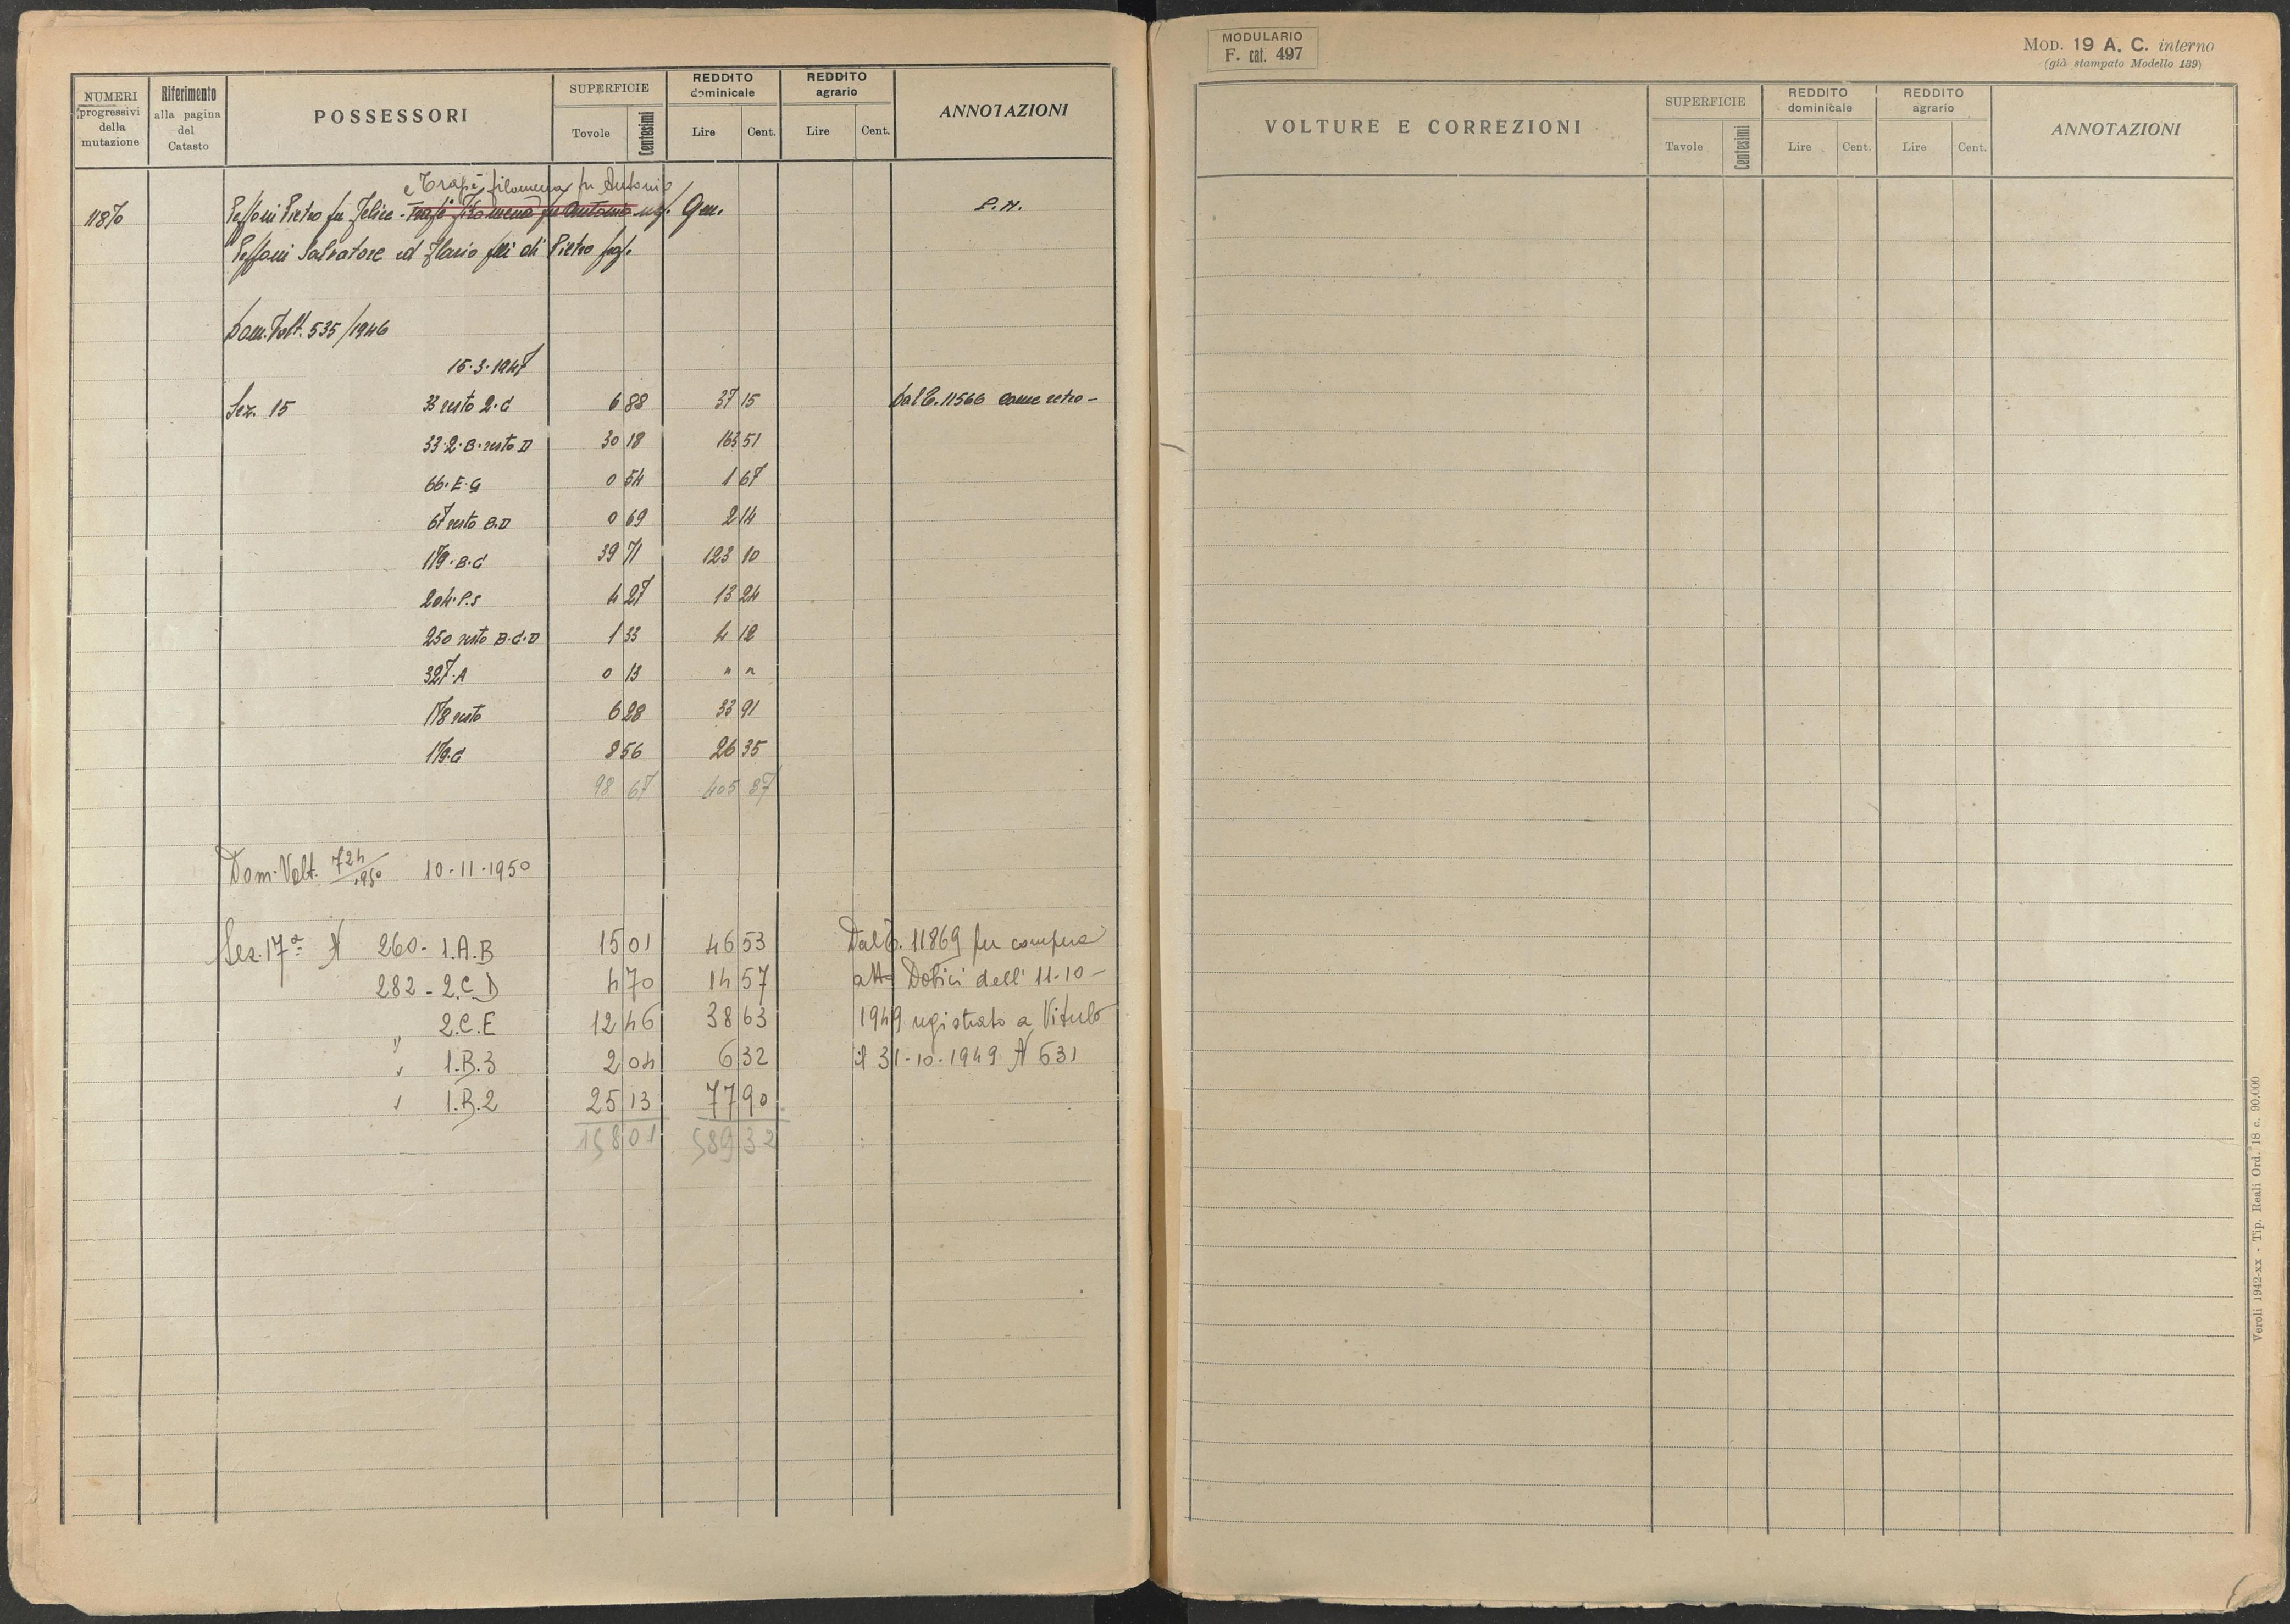 NUMERI progressivi della mutazione
Riferimento alla pagina del Catasto
POSSESSORI
SUPERFICIE
Tovole Centesimi
REDDITO dominicale
Lire Cent.
REDDITO agrario
Lire Cent.
ANNOTAZIONI
e Trapè filomena fu Antonio
11870 Pietro fu Felice - Trapè Filomena fu Antonio usf. Gen. P.N.
Salvatore ed Ilario flli di Pietro
Dom. Volt. 535/1946
15.3.1947
Sez. 15 33 resto 2.C 6 88 37 15 Dal C. 11566 come retro -
33.2.B. resto D 30 18 163 51
66. E.G 0 54 1 67
67 resto B.D 0 69 2 14
179. B.C 39 71 123 10
204. P.S 4 27 13 24
250 resto B.C.D 1 33 4 12
327. A 0 13 " "
178 resto 6 28 33 91
179. C 8 56 26 35
98 67 405 37
Dom. Volt. 724/1950 10-11-1950
Sez. 17ª N 260- 1.A.B 15 01 46 53 Dal C. 11869 per compera
282 - 2.C.D 4 70 14 57 atto Dobici dell' 11-10-
" 2.C.E 12 46 38 63 1949 registrato a
" 1.B.3 2 04 6 32 il 31-10-1949 N 631
" 1.B.2 25 13 77 90
158 01 589 32
MODULARIO
F. cat. 497
MOD. 19 A. C. interno
(già stampato Modello 139)
VOLTURE E CORREZIONI
SUPERFICIE
Tavole Centesimi
REDDITO dominicale
Lire Cent.
REDDITO agrario
Lire Cent.
ANNOTAZIONI
Veroli 1942-xx - Tip. Reali Ord. 18 c. 90.000